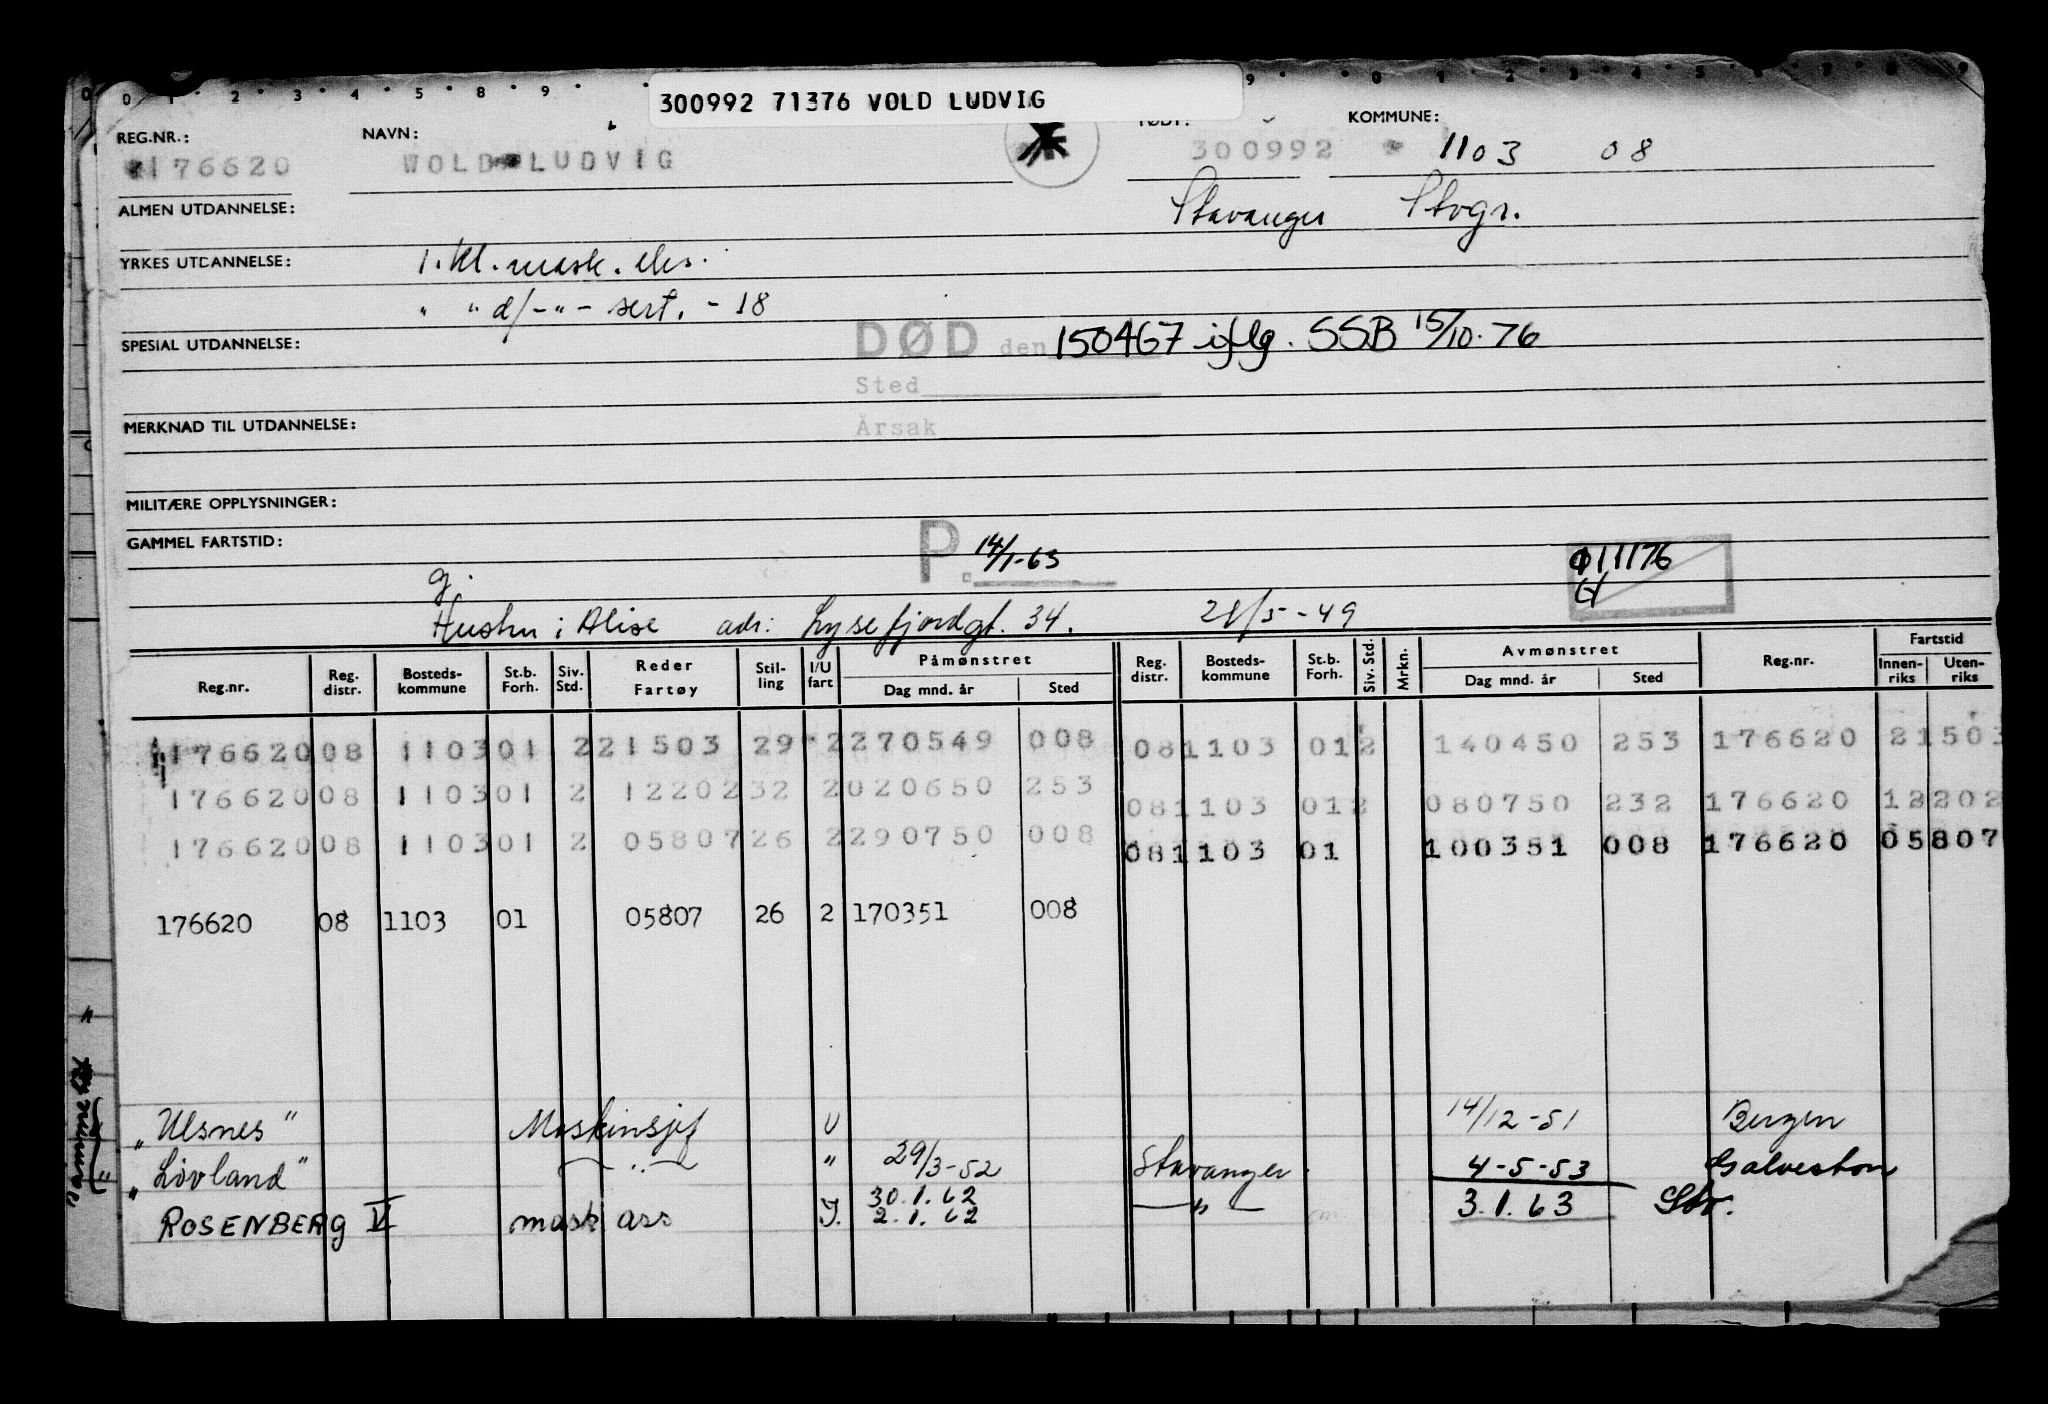 300992 71376 VOLD LUDVIG
REG.NR.: NAVN: FØDT: KOMMUNE:
176620 WOLD LUDVIG 300992 1103 08
ALMEN UTDANNELSE: Stavanger Stvgr.
YRKES UTDANNELSE: 1. kl. mask. eks.
" " d/-"- sert. - 18
SPESIAL UTDANNELSE: DØD den 150467 iflg. SSB 15/10-76
Sted
MERKNAD TIL UTDANNELSE: Årsak
MILITÆRE OPPLYSNINGER:
GAMMEL FARTSTID: P. 14/1-63 011176
g.
Hustru: Alise adr: Lysefjordgt. 34. 28/5-49
Reg.nr. Reg. distr. Bosteds-kommune St.b. Forh. Siv. Std. Reder Fartøy Stil-ling I/U fart Påmønstret Dag mnd. år Sted Reg. distr. Bosteds-kommune St.b. Forh. Siv. Std. Mrkn. Avmønstret Dag mnd. år Sted Reg.nr. Fartstid Innen-riks Uten-riks
176620 08 1103 01 2 21503 29 2 270549 008 08 1103 01 2 140450 253 176620 21503
176620 08 1103 01 2 12202 32 2 020650 253 08 1103 01 2 080750 232 176620 12202
176620 08 1103 01 2 05807 26 2 290750 008 08 1103 01 100351 008 176620 05807
176620 08 1103 01 05807 26 2 170351 008
"Ulsnes" Maskinsjef U 14/12-51 Bergen
"Lovland" — " — " 29/3-52 Stavanger 4-5-53 Galveston
30.1.62
ROSENBERG V mask ass I. 2.1.62 — " — 3.1.63 Stv.